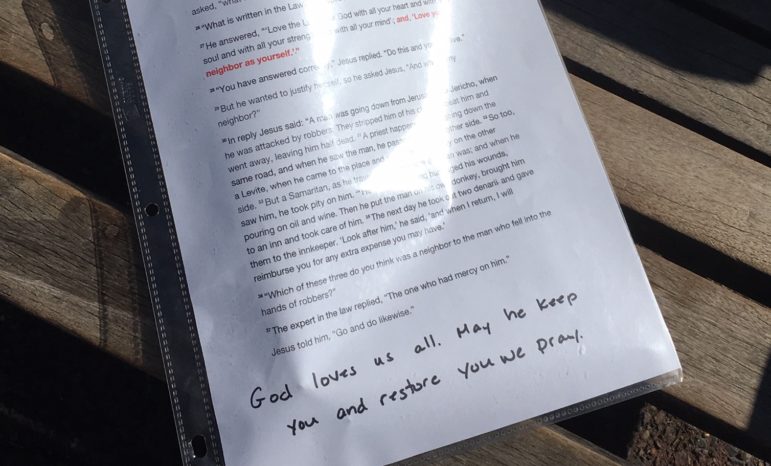 asked,
²⁶"What is written in the Law
²⁷He answered, "'Love the L God with all your heart and with
soul and with all your streng with all your mind'; and, 'Love yo
neighbor as yourself.'"
²⁸"You have answered corre Jesus replied. "Do this and yo live."
²⁹But he wanted to justify so he asked Jesus, "And my
neighbor?"
³⁰In reply Jesus said: "A man was going down from Jerus Jericho, when
he was attacked by robbers. They stripped him of his beat him and
went away, leaving him half dead. ³¹A priest happe going down the
same road, and when he saw the man, he pas other side. ³²So too,
a Levite, when he came to the place and on the other
side. ³³But a Samaritan, as he was; and when he
saw him, he took pity on him. his wounds,
pouring on oil and wine. Then he put the man own donkey, brought him
to an inn and took care of him. ³⁵The next day he took out two denarii and gave
them to the innkeeper. 'Look after him,' he said, 'and when I return, I will
reimburse you for any extra expense you may have.'
³⁶"Which of these three do you think was a neighbor to the man who fell into the
hands of robbers?"
³⁷The expert in the law replied, "The one who had mercy on him."
Jesus told him, "Go and do likewise."
God loves us all. May he keep
you and restore you we pray.